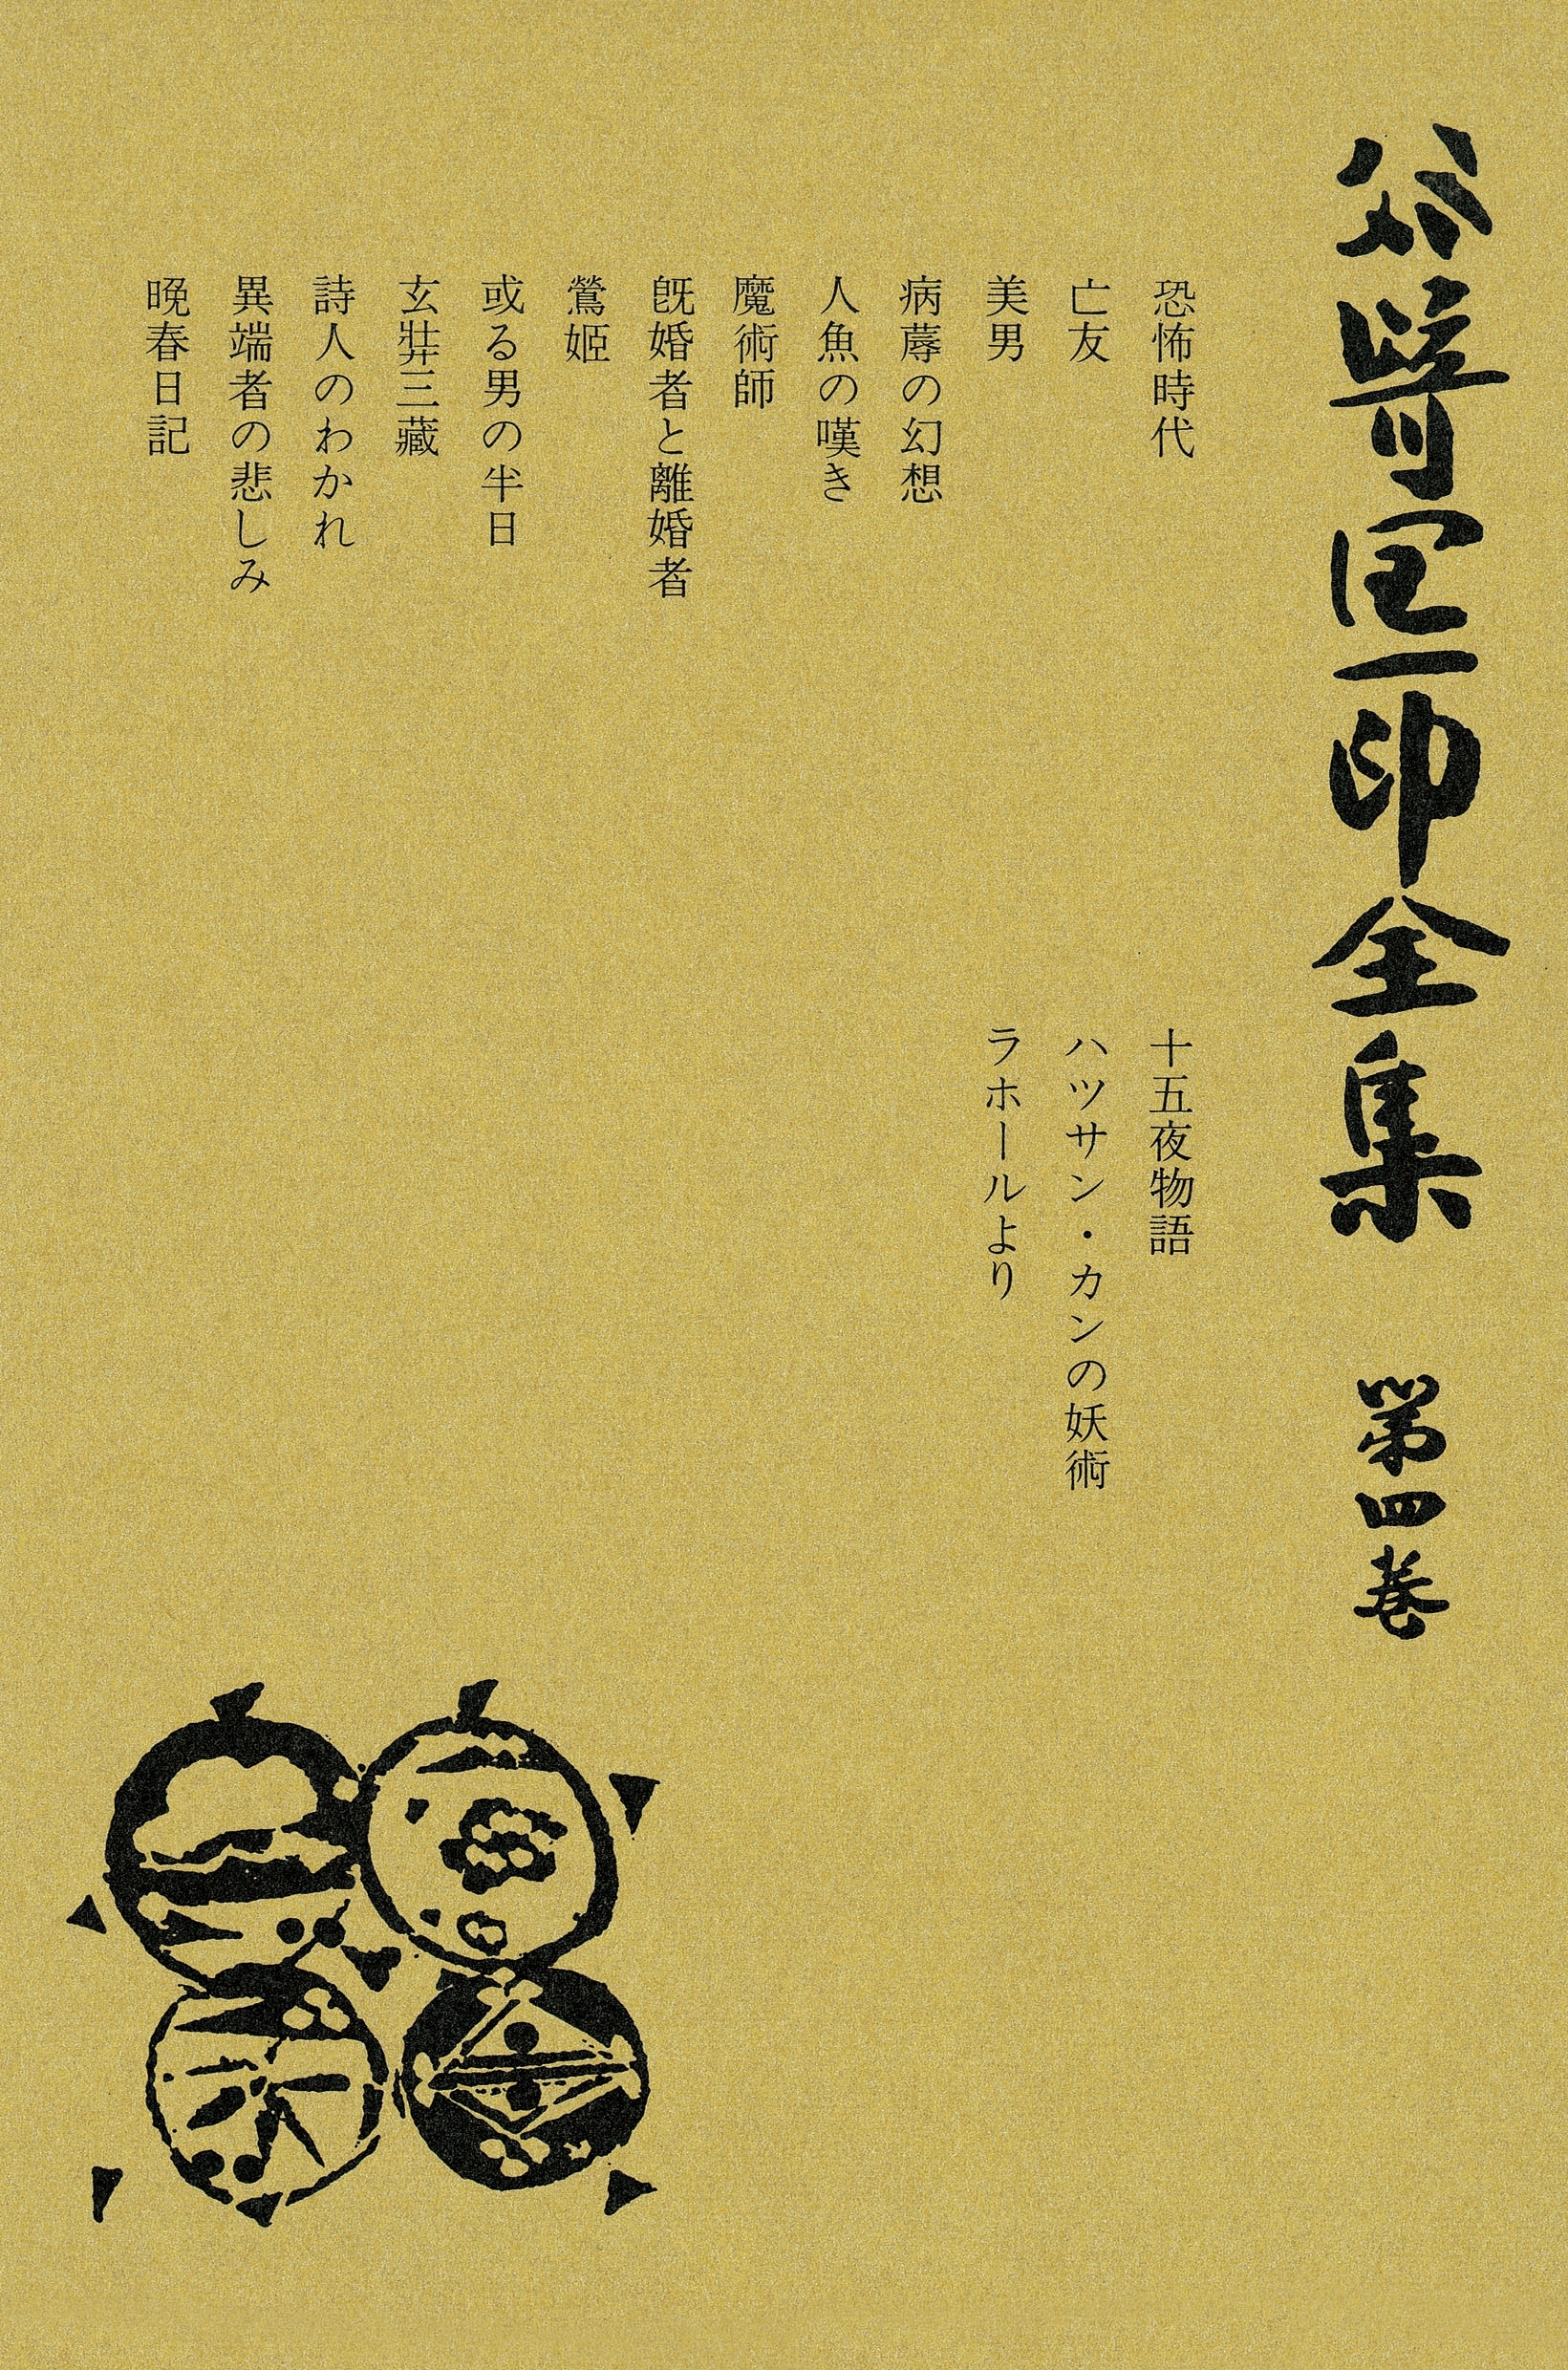 谷崎潤一郎全集 第四巻
恐怖時代
亡友
美男
病蓐の幻想
人魚の嘆き
魔術師
既婚者と離婚者
鶯姫
或る男の半日
玄弉三藏
詩人のわかれ
異端者の悲しみ
晩春日記
十五夜物語
ハツサン・カンの妖術
ラホールより